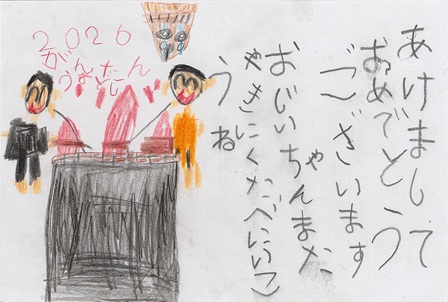 2026
がんたん
うまどし
あけまして
おめでとう
ございます
おじいちゃんまた
やきにくたべにいこ
うね